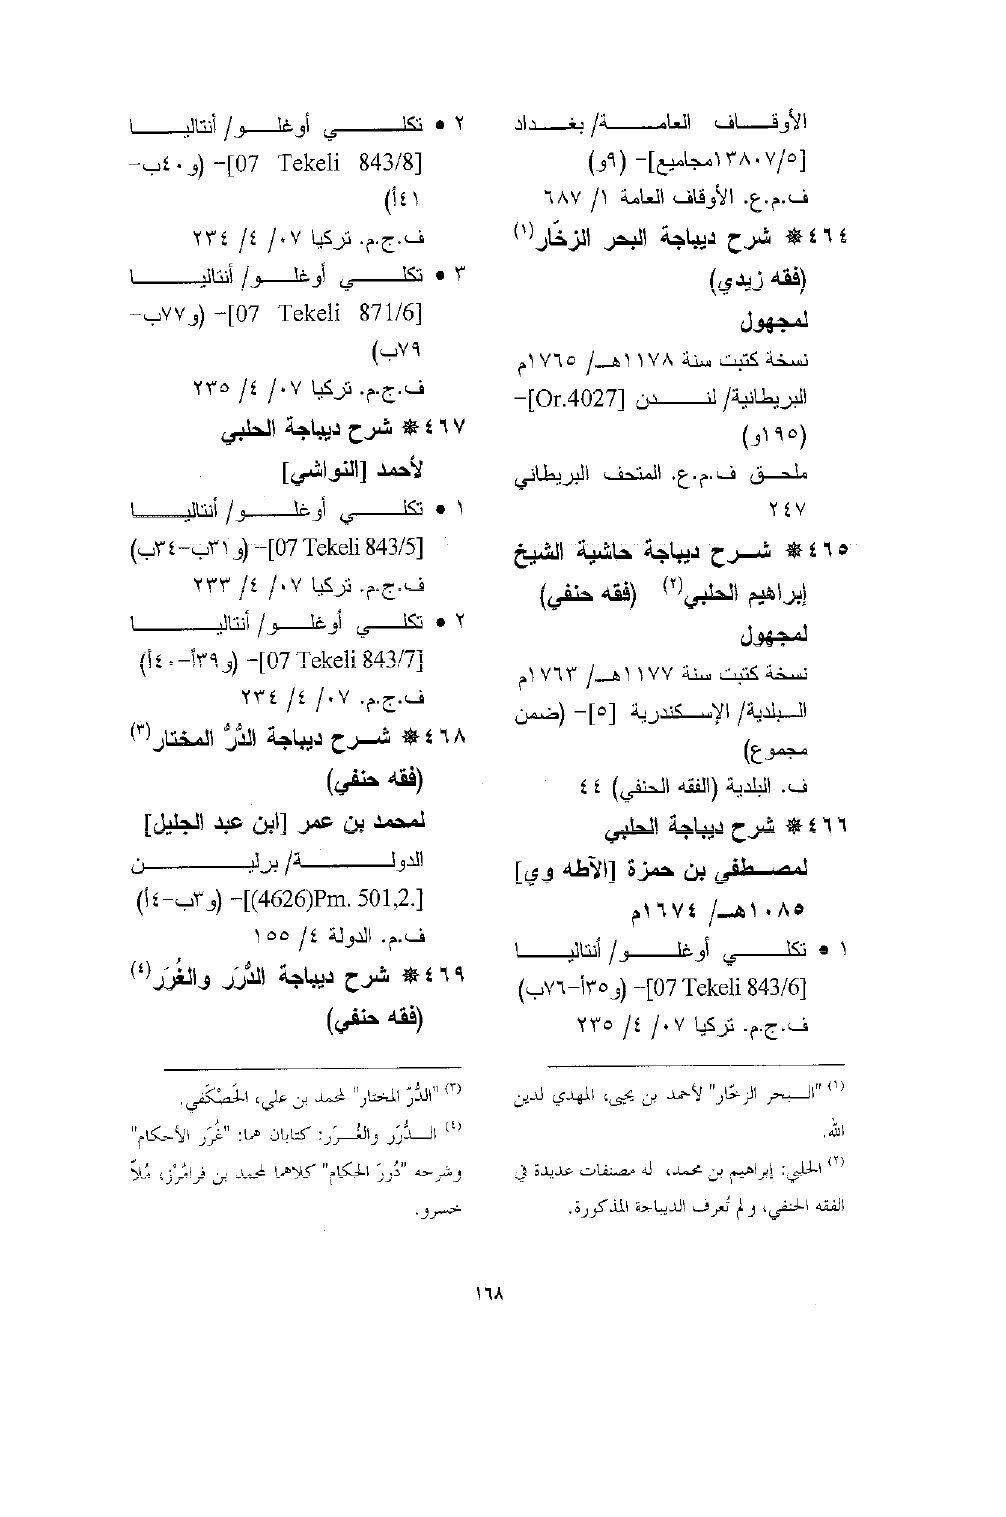 الأوقاف العامة/ بغداد
[١٣٨٠٧/٥مجاميع]- (٩و)
ف.م.ع. الأوقاف العامة ١/ ٦٨٧
٤٦٤* شرح ديباجة البحر الزخّار(١)
(فقه زيدي)
لمجهول
نسخة كتبت سنة ١١٧٨هـ/ ١٧٦٥م
البريطانية/ لندن [Or.4027]-
(١٩٥و)
ملحق ف.م.ع. المتحف البريطاني
٢٤٧
٤٦٥* شرح ديباجة حاشية الشيخ
إبراهيم الحلبي(٢) (فقه حنفي)
لمجهول
نسخة كتبت سنة ١١٧٧هـ/ ١٧٦٣م
البلدية/ الإسكندرية [٥]- (ضمن
مجموع)
ف. البلدية (الفقه الحنفي) ٤٤
٤٦٦* شرح ديباجة الحلبي
لمصطفى بن حمزة [الآطه وي]
١٠٨٥هـ/ ١٦٧٤م
١ • تكلي أوغلو/ أنتاليا
[07 Tekeli 843/6]- (و٣٥أ-٧٦ب)
ف.ج.م. تركيا ٠٧/ ٤/ ٢٣٥
(١) "البحر الزخّار" لأحمد بن يحيى، المهدي لدين
الله.
(٢) الحلبي: إبراهيم بن محمد، له مصنفات عديدة في
الفقه الحنفي، ولم تُعرف الديباجة المذكورة.
٢ • تكلي أوغلو/ أنتاليا
[07 Tekeli 843/8]- (و٤٠ب-
٤١أ)
ف.ج.م. تركيا ٠٧/ ٤/ ٢٣٤
٣ • تكلي أوغلو/ أنتاليا
[07 Tekeli 871/6]- (و٧٧ب-
٧٩ب)
ف.ج.م. تركيا ٠٧/ ٤/ ٢٣٥
٤٦٧* شرح ديباجة الحلبي
لأحمد [النواشي]
١ • تكلي أوغلو/ أنتاليا
[07 Tekeli 843/5]- (و٣١ب-٣٤ب)
ف.ج.م. تركيا ٠٧/ ٤/ ٢٣٣
٢ • تكلي أوغلو/ أنتاليا
[07 Tekeli 843/7]- (و٣٩أ-٤٠أ)
ف.ج.م. ٠٧/ ٤/ ٢٣٤
٤٦٨* شرح ديباجة الدُّرُّ المختار(٣)
(فقه حنفي)
لمحمد بن عمر [ابن عبد الجليل]
الدولة/ برلين
[(4626)Pm. 501,2.]- (و٣ب-٤أ)
ف.م. الدولة ٤/ ١٥٥
٤٦٩* شرح ديباجة الدُّرَر والغُرَر(٤)
(فقه حنفي)
(٣) "الدُّرّ المختار" لمحمد بن علي، الحَصْكَفي.
(٤) الدُّرَر والغُرَر: كتابان هما: "غُرَر الأحكام"
وشرحه "دُررَ الحكام" كلاهما لمحمد بن فرامُرْز، مُلاّ
خسرو.
١٦٨